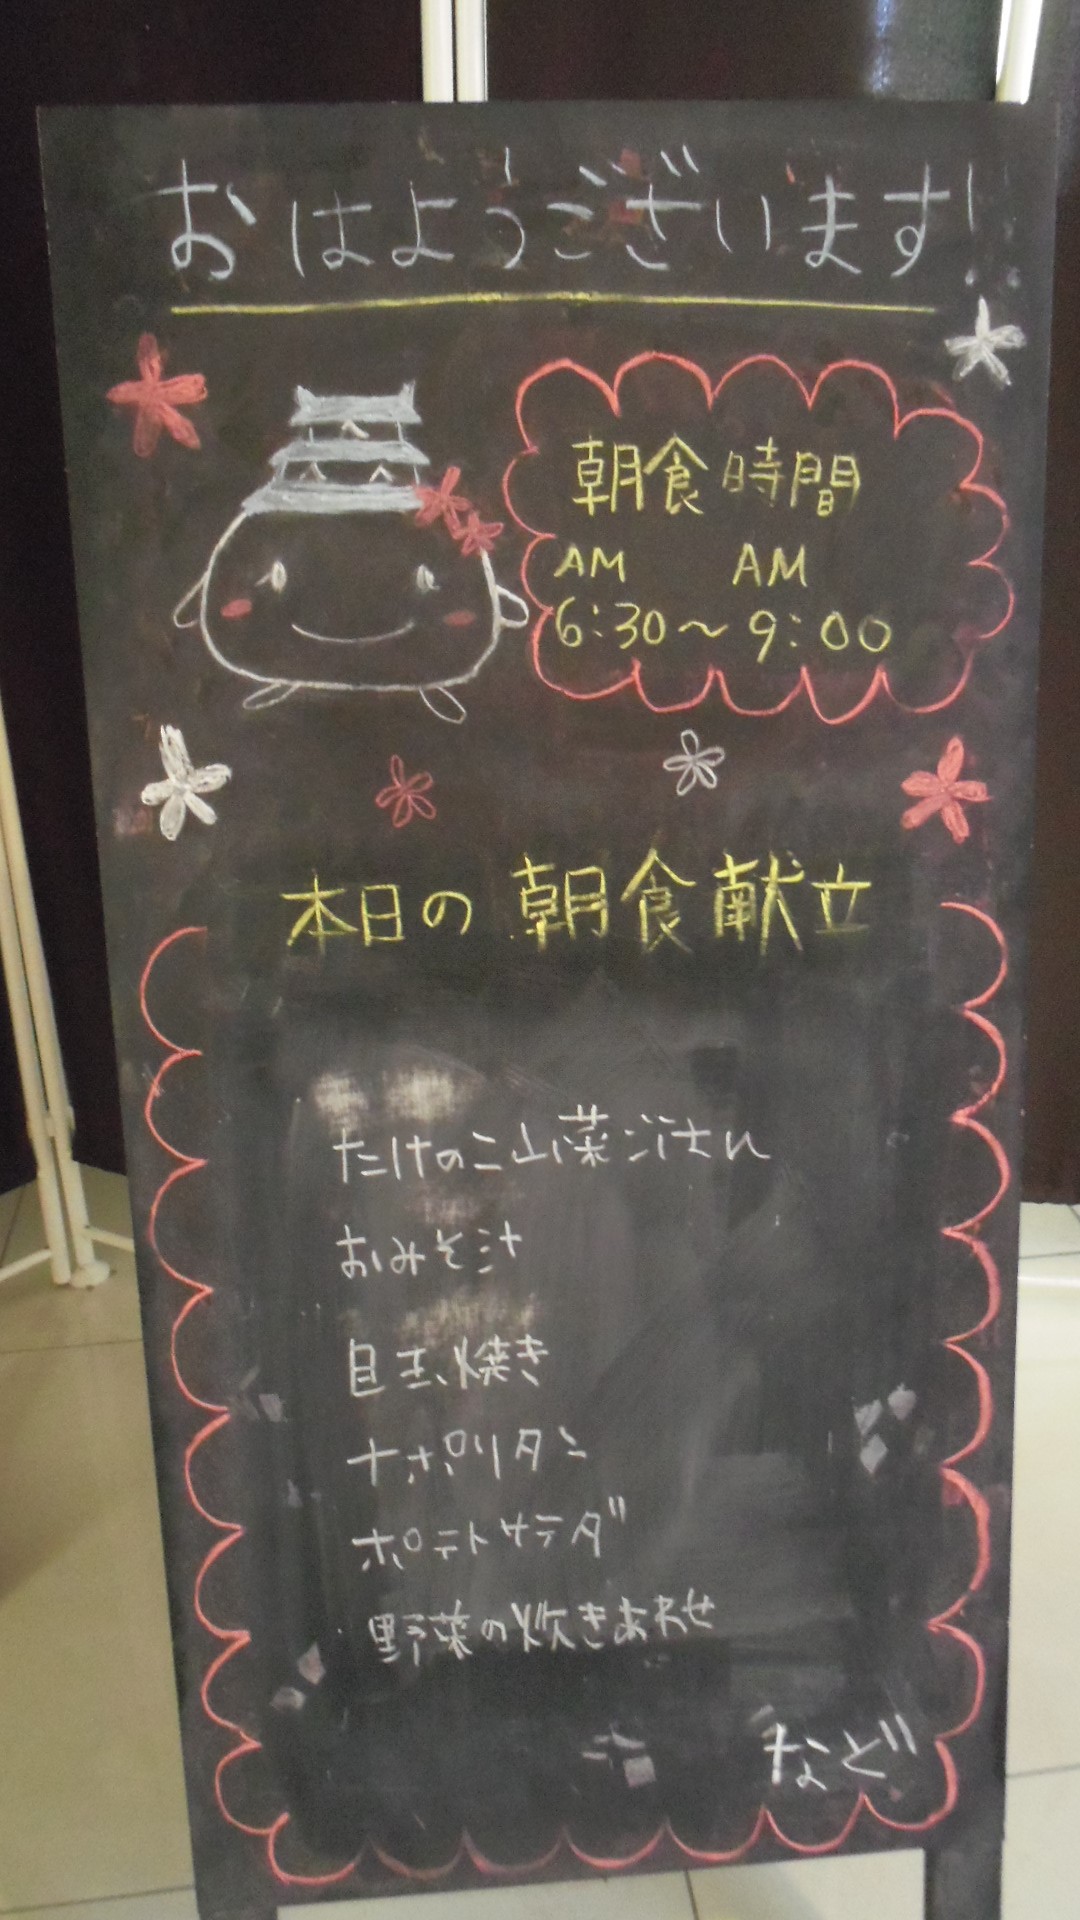 おはようございます!!
朝食時間
AM AM
6:30～9:00
本日の朝食献立
たけのこ山菜ごはん
おみそ汁
目玉焼き
ナポリタン
ポテトサラダ
野菜の炊きあわせ
など